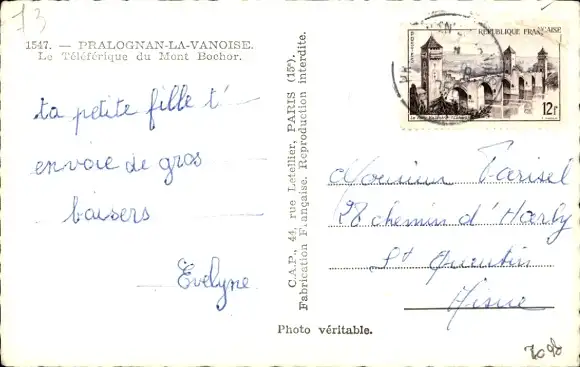 73
1547. — PRALOGNAN-LA-VANOISE.
Le Téléférique du Mont Bochor.
ta petite fille t'
envoie de gros
baisers
Evelyne
C.A.P., 44, rue Letellier, PARIS (15e).
Fabrication Française. Reproduction interdite.
Photo véritable.
POSTES
REPUBLIQUE FRANÇAISE
12F
Monsieur Parisel
28 chemin d'Harly
St Quentin
Aisne